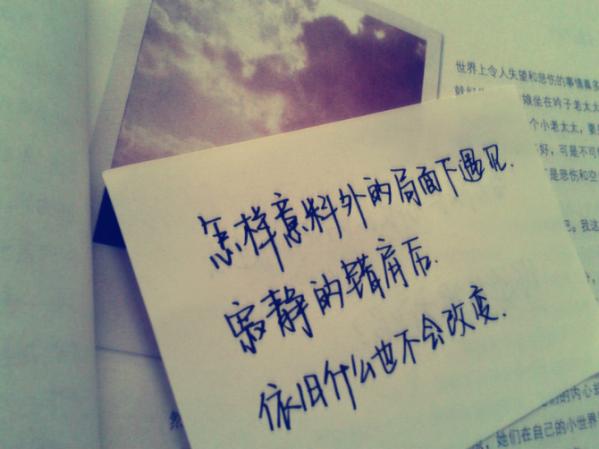 世界上令人失望和悲伤的事情真多
娘坐在吟子老太太
个小老太太，要
好，可是不可
是悲伤和空
怎样意料外的局面下遇见.
寂静的错肩后.
依旧什么也不会改变.
我这
的内心
她们在自己的小世界